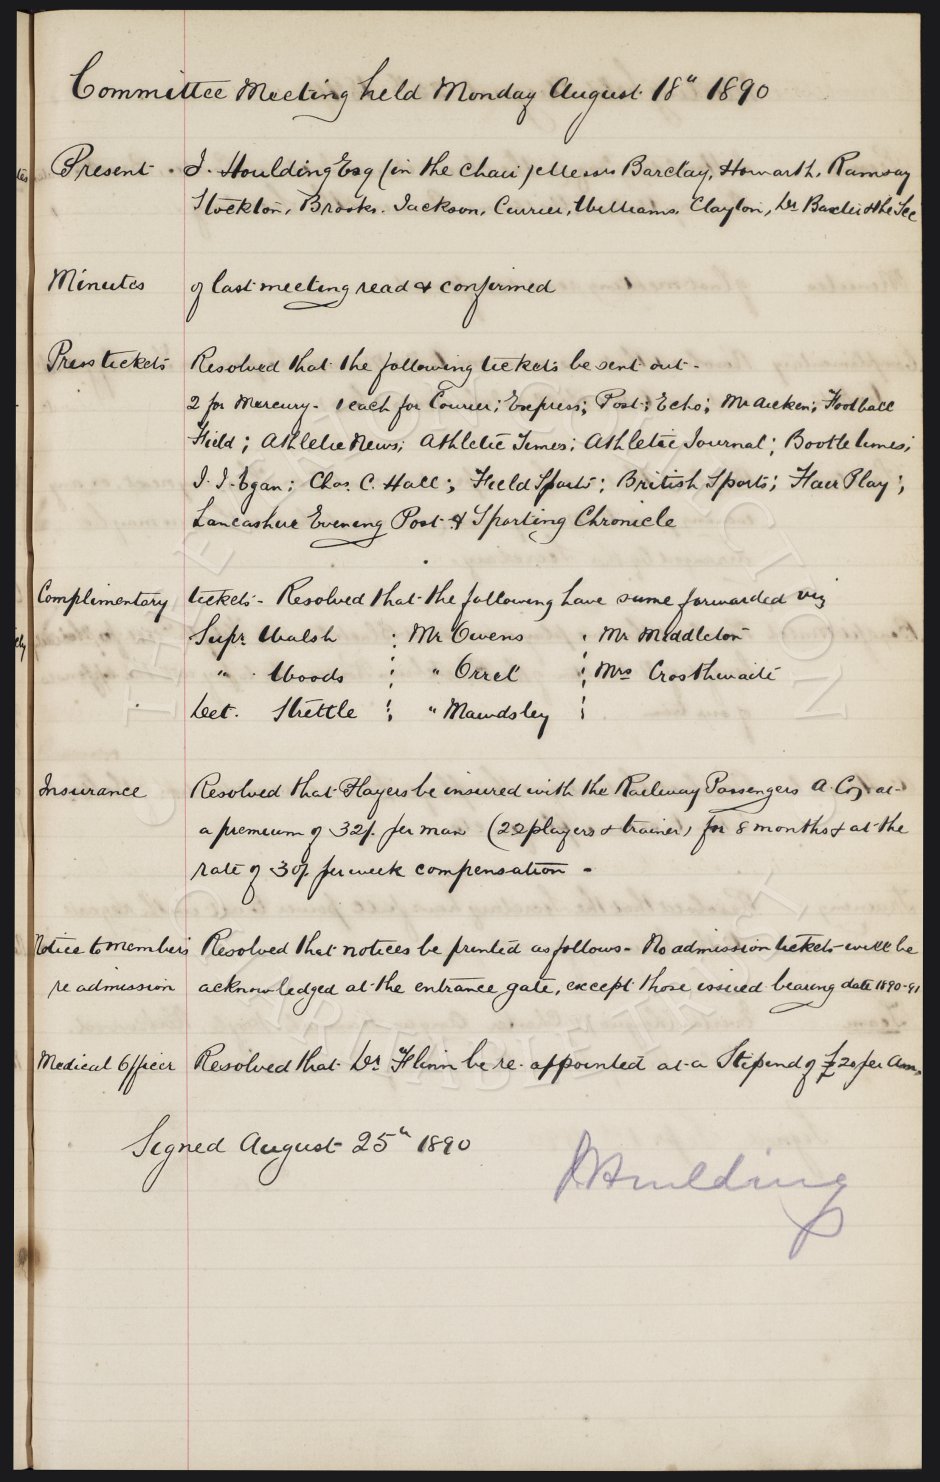 Committee Meeting held Monday August 18th 1890
Present . J. Houlding Esq (in the chair) Messrs Barclay, Howarth, Ramsay
Stockton, Brooks. Jackson, Currier, Williams, Clayton, Dr Baxter & the Sec
Minutes of last meeting read & confirmed
Press tickets Resolved that the following tickets be sent out -
2 for Mercury - 1 each for Courier; Express; Post; Echo; Mr Aicken; Football
Field; Athletic News; Athletic Times; Athletic Journal; Bootle times;
J. J. Egan; Chas. C. Hall; Field Sports; British Sports; Fair Play;
Lancashire Evening Post & Sporting Chronicle
Complimentary tickets - Resolved that the following have same forwarded viz
Supr. Walsh : Mr Owens : Mr Middleton
" Woods : " Orrel : Mrs Crosthwaite
Det. Strettle : " Mawdsley :
Insurance Resolved that Players be insured with the Railway Passengers A. Coy at
a premium of 32/- per man (22 players & trainer) for 8 months & at the
rate of 30/- per week compensation -
Notice to members Resolved that notices be printed as follows - No admission tickets will be
re admission acknowledged at the entrance gate, except those issued bearing date 1890-91
Medical Officer Resolved that Dr Flinn be re-appointed at a Stipend of £20 per Ann.
Signed August 25th 1890
J Houlding
THE EVERTON COLLECTION
CHARITABLE TRUST